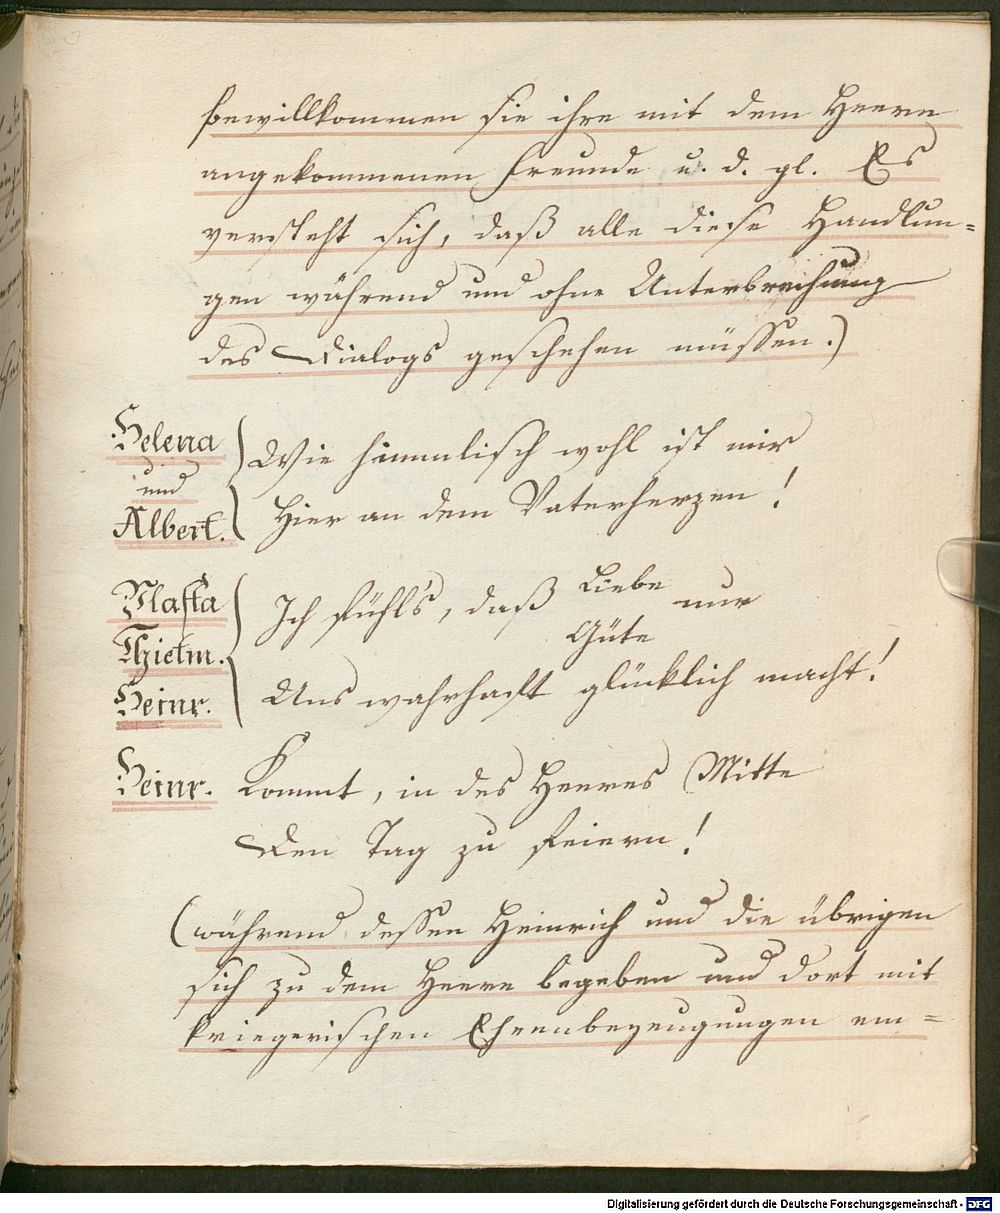 bewillkommen sie ihre mit dem Heere
angekommenen Freunde u. d. gl. Es
versteht sich, daß alle diese Handlun=
gen während und ohne Unterbrechung
des Dialogs geschehen müssen.)
Helena
und
Albert.
Wie himmlisch wohl ist mir
Hier an dem Vaterherzen!
Thietm.
Heinr.
Ich fühls, daß Liebe nur
Güte
Uns wahrhaft glücklich macht!
Heinr. Kommt, in des Heeres Mitte
Den Tag zu feiern!
(während dessen Heinrich und die übrigen
sich zu dem Heere begeben und dort mit
kriegerischen Ehrenbezeugungen em=
Digitalisierung gefördert durch die Deutsche Forschungsgemeinschaft - DFG